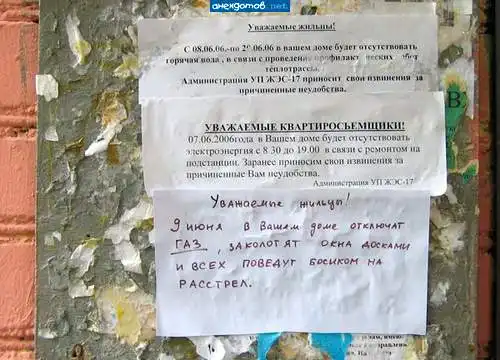 анекдотов.net
Уважаемые жильцы!
С 08.06.06.-по 29.06.06 в вашем доме будет отсутствовать
горячая вода , в связи с проведение профилакт ческих
теплотрассы.
Администрация УП ЖЭС-17 приносит свои извинения за
причиненные неудобства.
В
УВАЖАЕМЫЕ КВАРТИРОСЪЕМЩИКИ!
07.06.2006года в Вашем доме будет отсутствовать
электроэнергия с 8 30 до 19.00 в связи с ремонтом на
подстанции. Заранее приносим свои извинения за
причиненные Вам неудобства.
Администрация УП ЖЭС-17
Уважаемые жильцы!
9 июня в Вашем доме отключат
газ, заколотят окна досками
и всех поведут босиком на
расстрел.